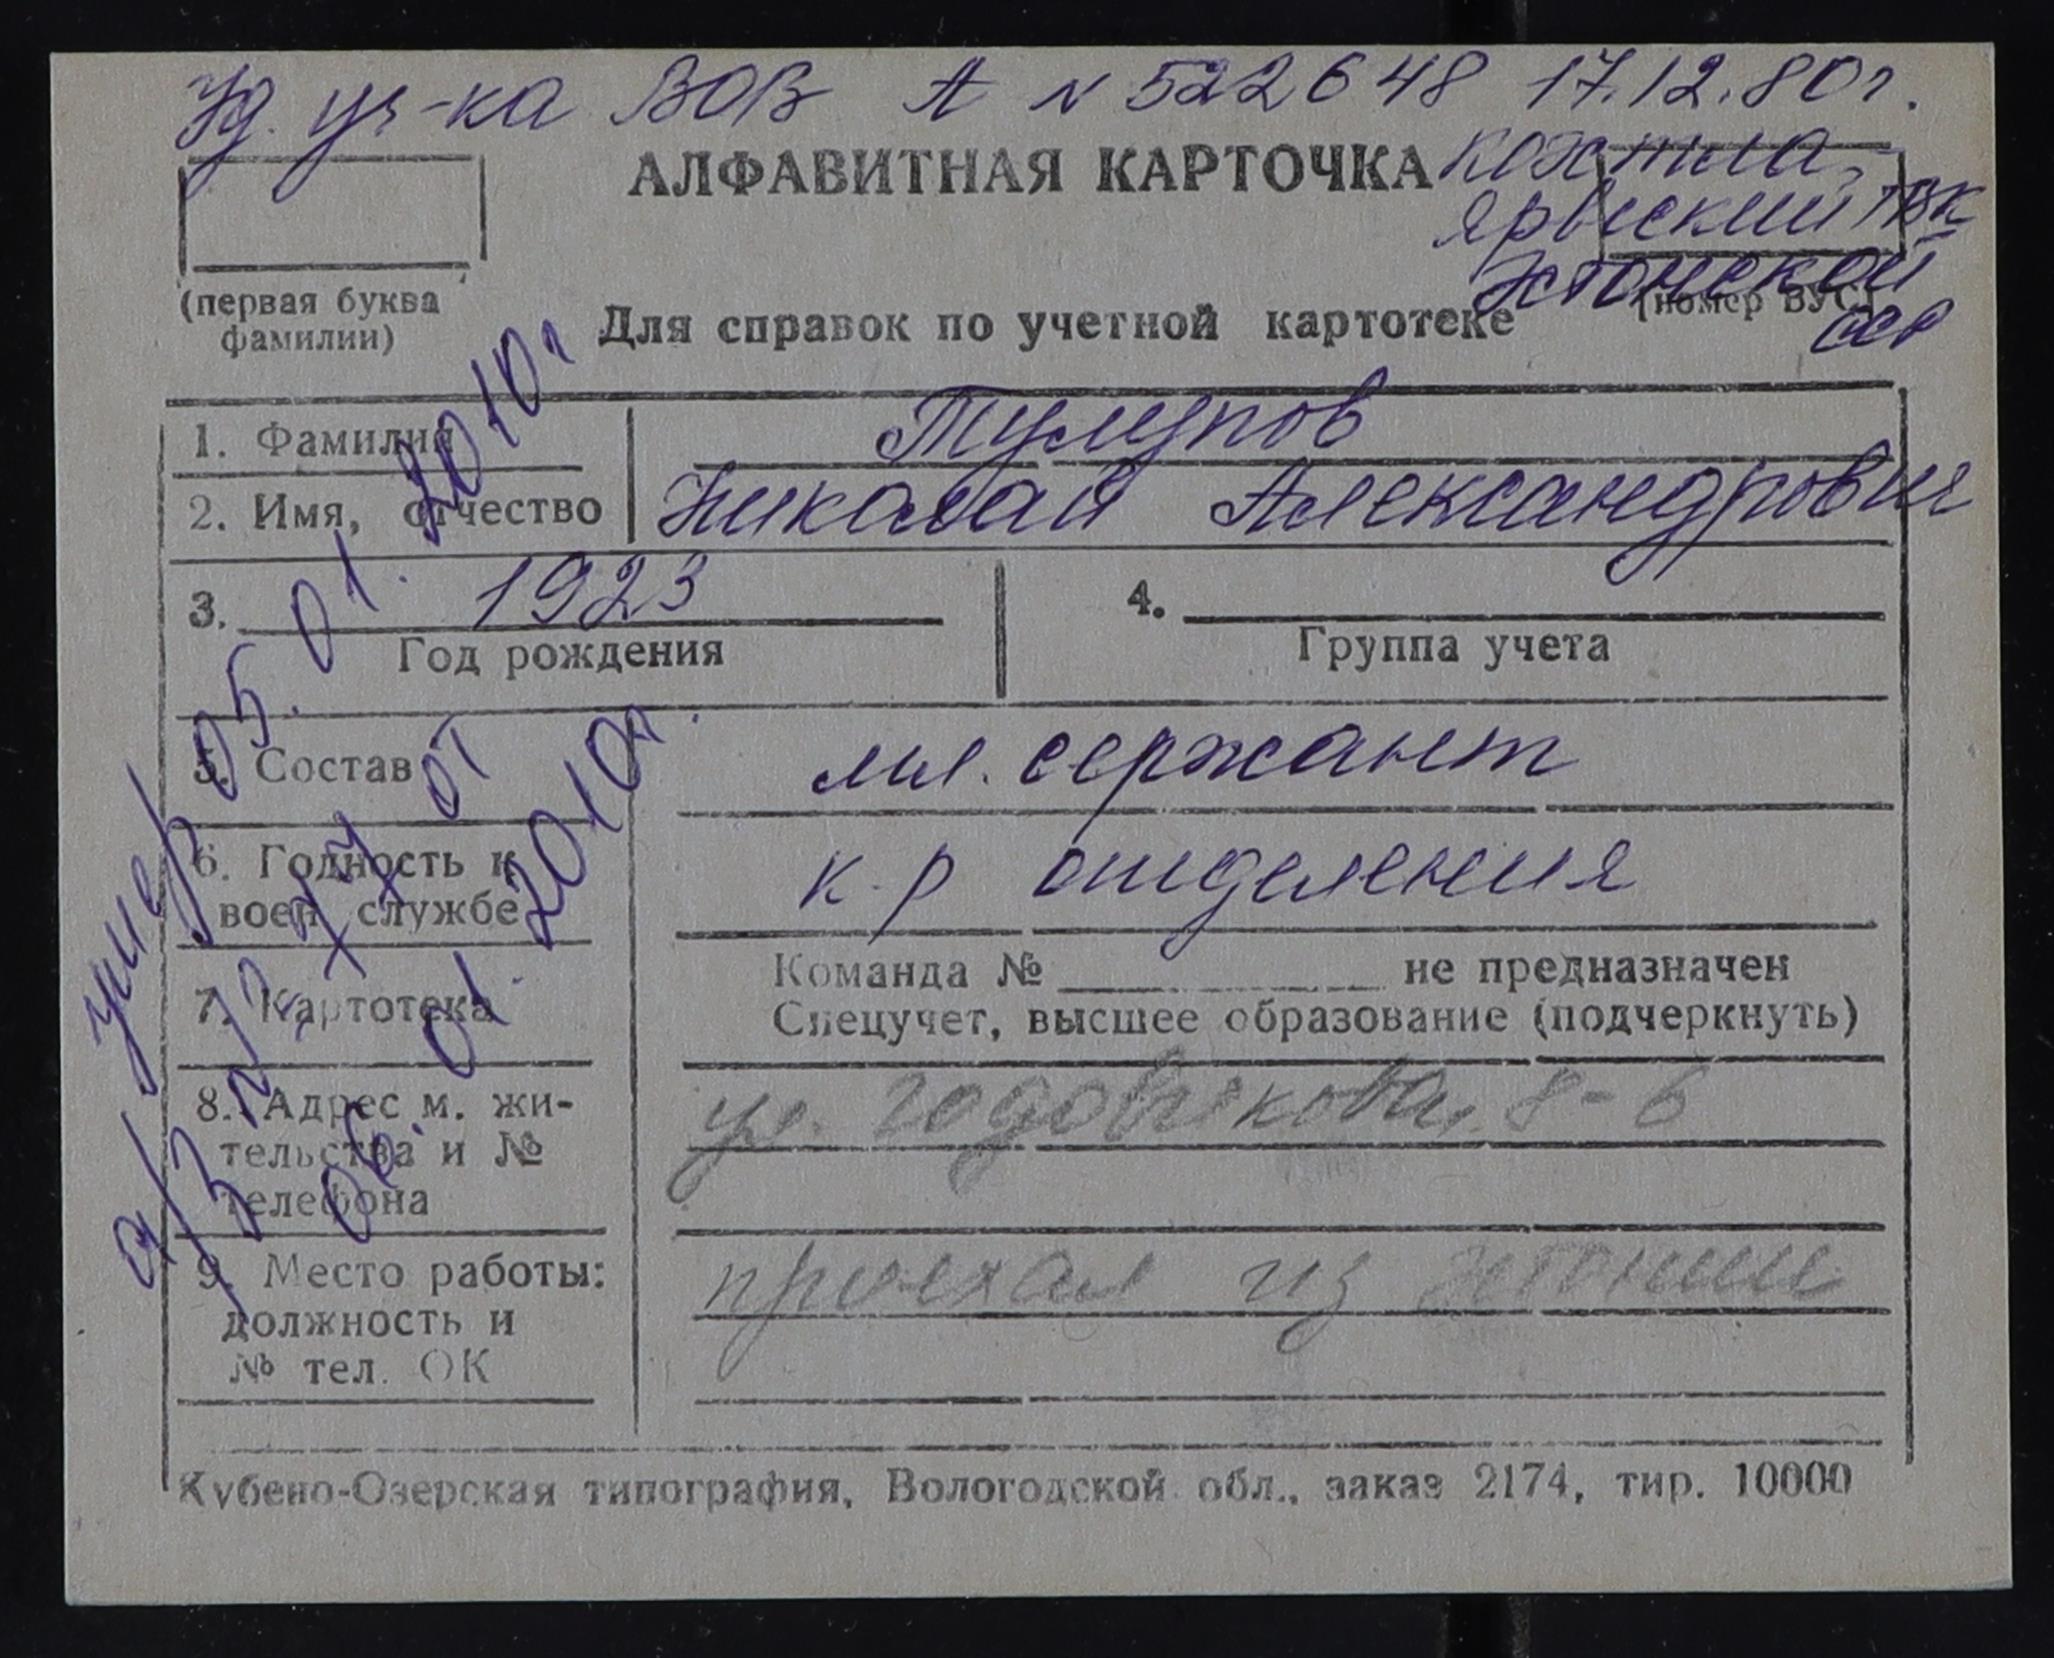 Уд. уч-ка ВОВ А N 522648 17.12.80г.
АЛФАВИТНАЯ КАРТОЧКА
Кохтла-
Ярвеский ГВК
Эстонской
ССР
(первая буква
фамилии)
(номер ВУС)
Для справок по учетной картотеке
1. Фамилия Тулупов
2. Имя, отчество Николай Александрович
3. 1923
Год рождения
4.
Группа учета
5. Состав мл. сержант
6. Годность к
воен службе
к-р отделения
7. Картотека
Команда № не предназначен
Спецучет, высшее образование (подчеркнуть)
8. Адрес м. жи-
тельства и №
телефона
ул. Годовикова, 8-6
9. Место работы:
должность и
№ тел. ОК
приехал из Эстонии
умер 05.01.2010г.
а/з N от
06.01.2010г.
Кубено-Озерская типография, Вологодской обл., заказ 2174, тир. 10000